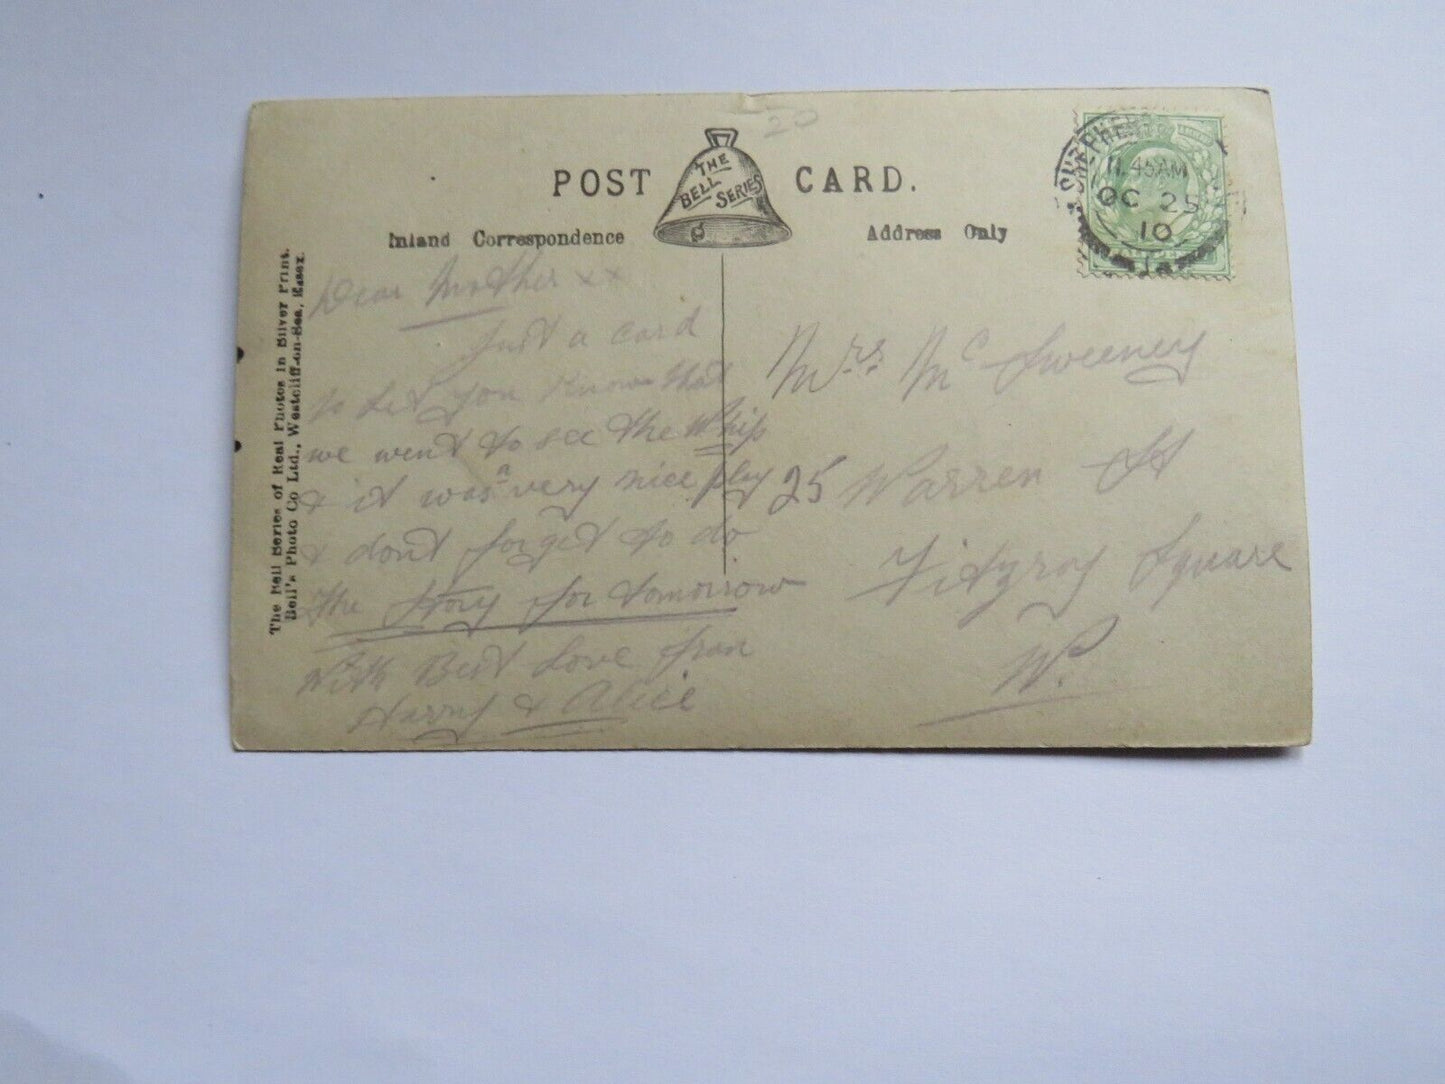 20
POST CARD.
THE
BELL
SERIES
Inland Correspondence
Address Only
SHEPHERD'S
11.45AM
OC 25
10
The Bell Series of Real Photos in Silver Print.
Bell's Photo Co Ltd., Westcliff-on-Sea, Essex.
Dear Mother xx
Just a card
to let you know that
we went to see the Whip
& it was a very nice play
& dont forget to do
the Story for tomorrow
With Best Love from
Harry & Alice
Mrs. Mc Sweeney
25 Warren St
Fitzroy Square
W.